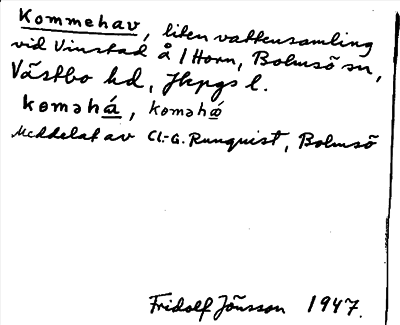 Kommehav, liten vattensamling
vid Vinstad å / Horn, Bolmsö sn,
Västbo hd, Jkpgs l.
koməhá, koməhǻ
Meddelat av Cl.-G. Runquist, Bolmsö
Fridolf Jönsson 1947.